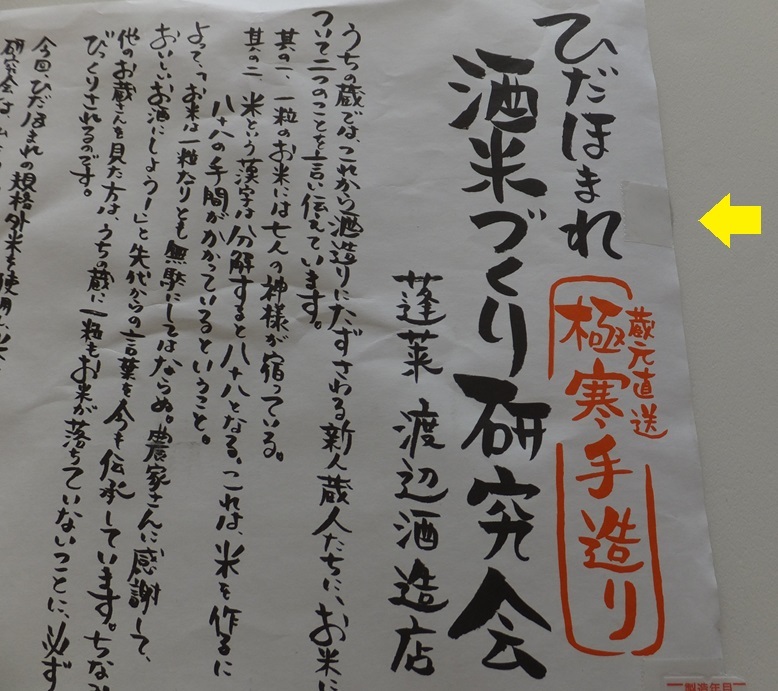 ひだほまれ
酒米づくり研究会
蔵元直送
極寒手造り
蓬莱 渡辺酒造店
うちの蔵では、これから酒造りにたずさわる新人蔵人たちに、お米に
ついて二つのことを言い伝えています。
其の一、一粒のお米には七人の神様が宿っている。
其の二、米という漢字は分解すると八十八となる。これは、米を作るに
八十八の手間がかかっているということ。
よって、「お米は一粒なりとも無駄にしてはならぬ。農家さんに感謝して、
おいしいお酒にしよう!」と先代からの言葉を今も伝承しています。ちなみ
他のお蔵さんを見た方は、うちの蔵に一粒もお米が落ちていないことに、必ず
びっくりされるのです。
今回、ひだほまれの規格外米を使用
研究会は、
製造年月